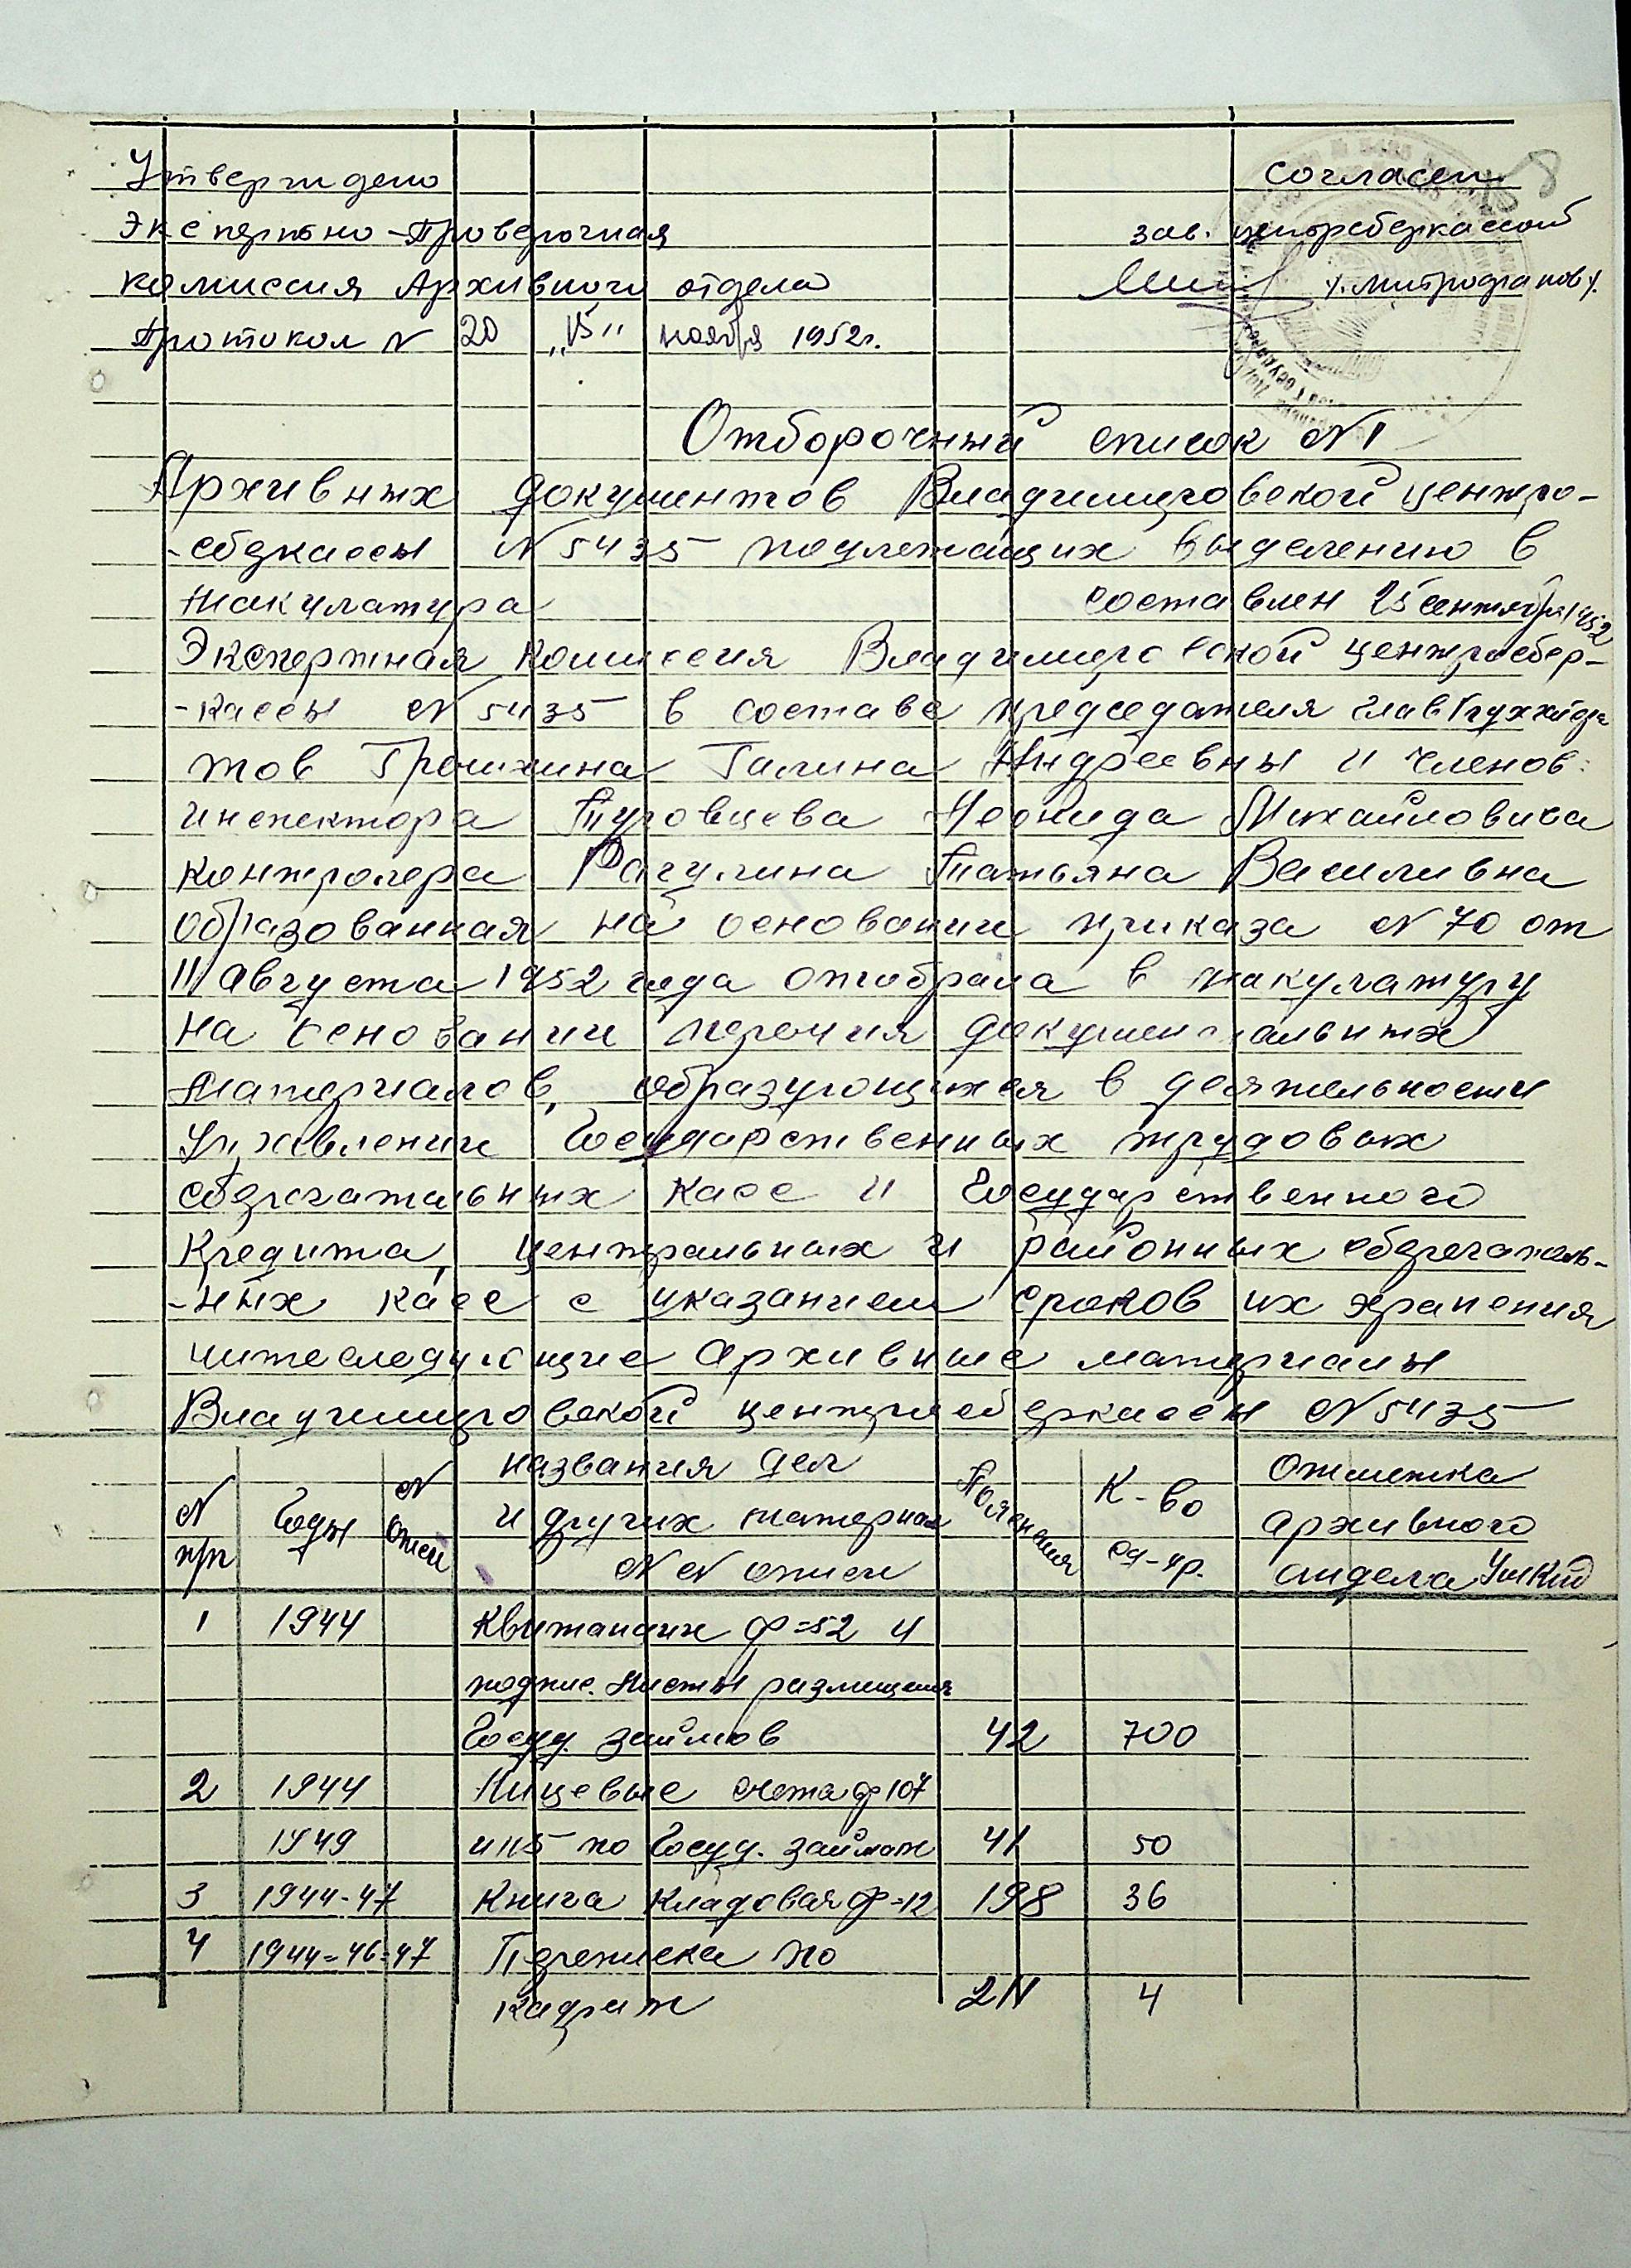 Утверждено
Согласен
Экспертно-Проверочная
зав. центрсберкассой
комиссия Архивного отдела
/. Митрофанов /.
Протокол N 20 "15" ноября 1952г.
Отборочный список N 1
Архивных документов Владимировской центро-
-сбркассы N 5435 подлежащих выделению в
макулатура составлен 25 сентября 1952
Экспертная комиссия Владимировской центрсбер-
-кассы N 5435 в составе председателя
тов Грошихина Галина Андреевны и членов:
инспектора Туровцева Леонида Михайловича
контролера Рагулина Татьяна Василивна
образованная на основании приказа N 70 от
11 августа 1952 года отобрала в макулатуру
на основании перечня документальных
материалов, образующихся в деятельности
Управлении Государственных трудовых
сберегательных касс и Государственного
Кредита, центральных и районных сберегатель-
-ных касс с указанием сроков их хранения
нижеследующие архивные материалы
Владимировской центрсберкассы N 5435
N п/п
Годы
N описи
названия дел
и других материал
N N описи
Пояснения
К-во
ед-хр.
Отметка
архивного
отдела
1 1944 Квитанции ф=52 и
подпис. Листы размещения
Госуд. займов 42 700
2 1944 Лицевые счета ф 107
1949 и 115 по Госуд. займам 41 50
3 1944-47 Книга кладовая ф=12 198 36
4 1944=46=47 Переписка по
кадрам 211 4